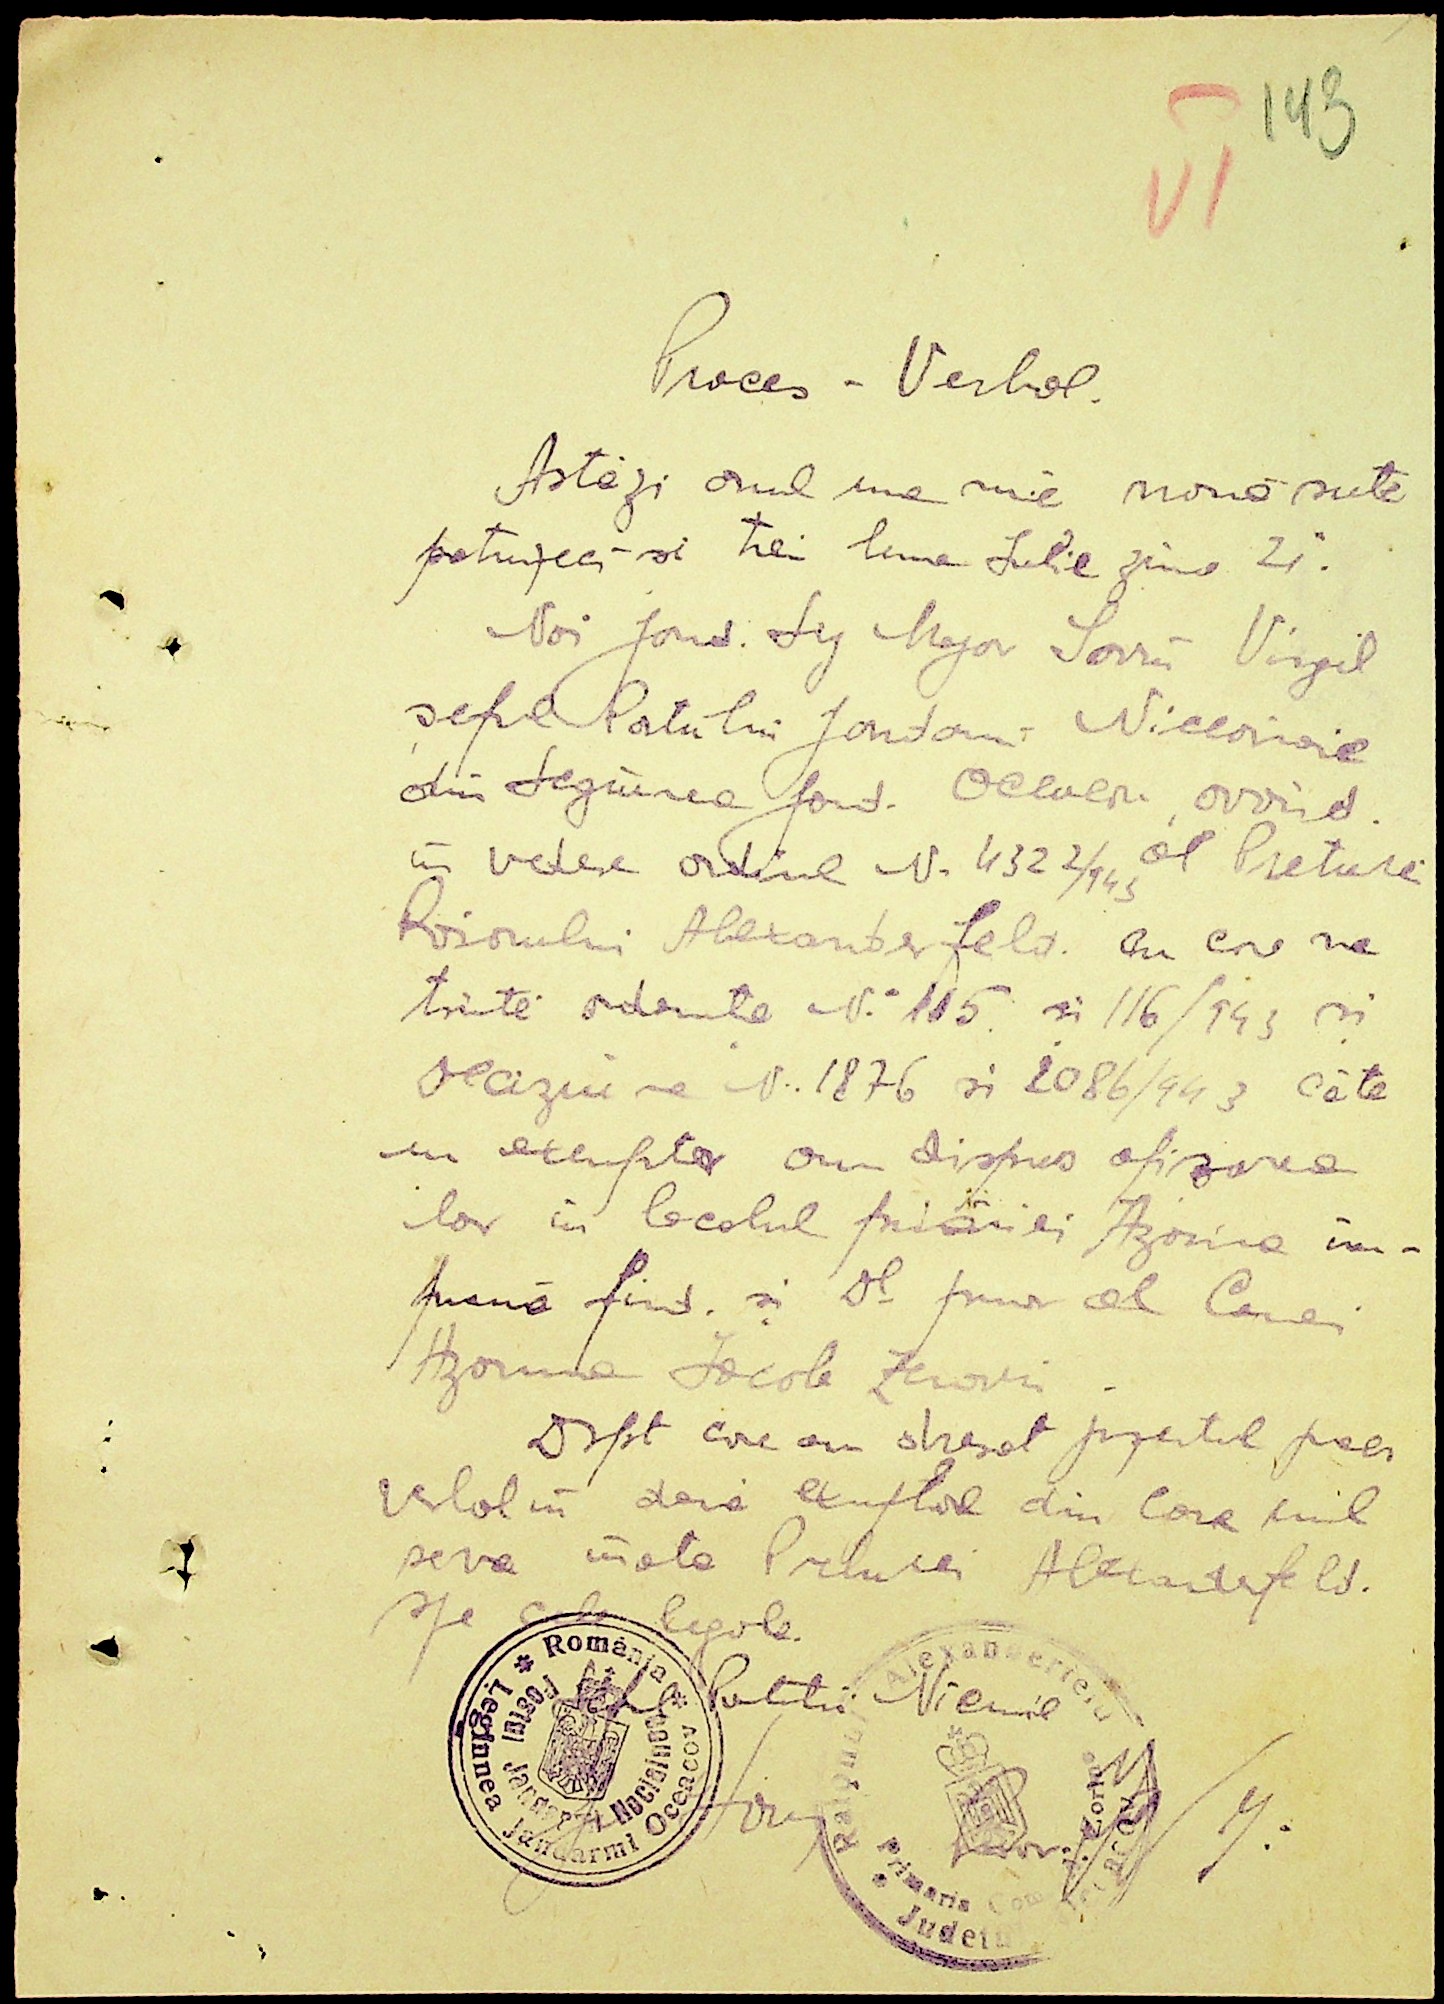 143
VI
Proces - Verbal.
Astăzi anul una mie nouă sute
patruzeci si trei luna Iulie ziua 21.
Noi Jand. Sg Major Savin Virgil
șeful Postului Jandarmi
din Legiunea Jand. Oceacov, avvind
in vedere ordinul N. 4322/943 al Preturei
Raionului Alexanderfeld. cu care ne
trimite ordonanta N. 115 si 116/943 si
N. 1876 si 2086/943 câte
un exemplar am dispus afisarea
lor in localul primăriei im-
preună fiind si Dl primar al Comei
Iacob
Drept care am dresat prezentul proces
verbal in două exemplare din care unul
seva inainta Preturei Alexanderfeld.
spe cele legale.
Șeful Postului
România
Legiunea Jandarmi Oceacov
Postul Jandarmi
Raionul Alexanderfeld
Primaria Com.
Judetul